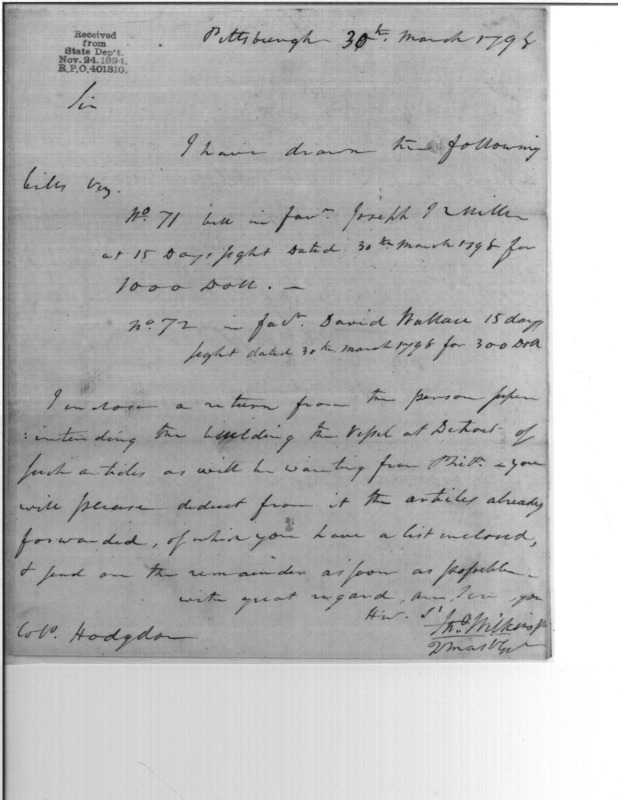 Received
from
State Dep't.
Nov. 24. 1894.
R.P.O. 401310.
Pittsburgh 30th. March 1798
Sir
I have drawn the following
bills viz.
No. 71 bill in favr. Joseph J Miller
at 15 Days sight Dated 30th March 1798 for
1000 Doll. —
No. 72 in favr. David Wallace 15 days
sight dated 30th March 1798 for 300 Doll
I inclose a return from the person super
:intending the building the Vessel at Detroit of
such articles as will be wanting from Phila. & you
will please deduct from it the articles already
forwarded, of which you have a list inclosed,
& send on the remainder as soon as possible —
with great regard, am, Sir, your
Hue. St
Jno. Wilkins Jr
Colo. Hodgdon
QMastGel